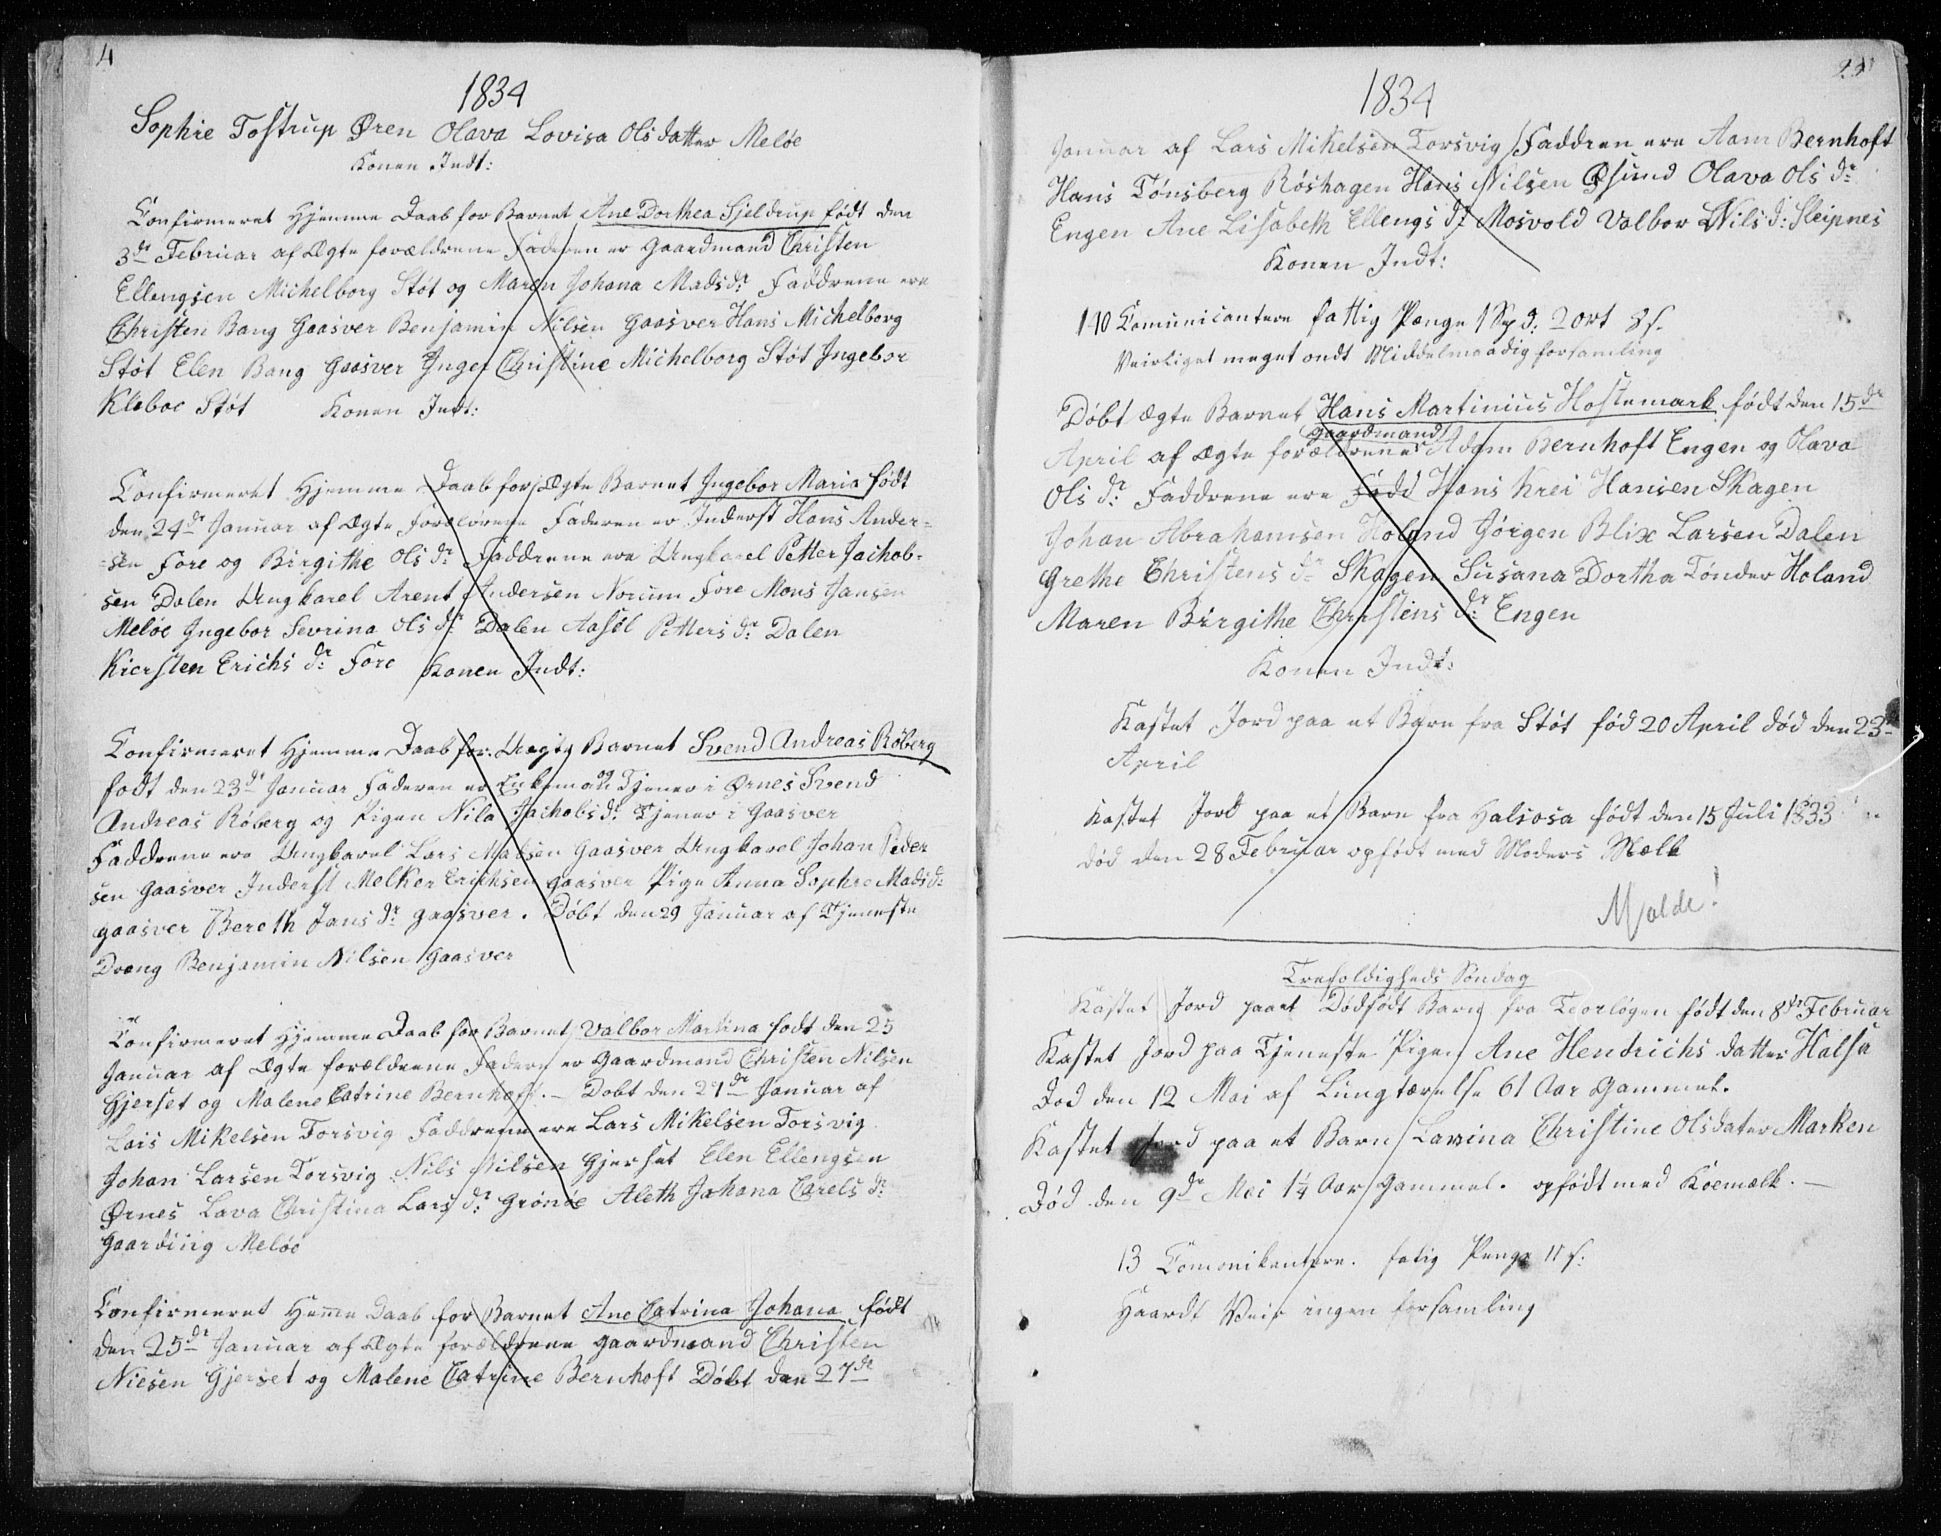 4
1834
Sophie Tostrup Øren Olava Lovisa Olsdatter Meløe
Konen Indt:
Confirmeret Hjemme Daab for Barnet Ane Dorthea Sjeldrup født den
3de Februar af Ægte forældrene Faderen er Gaardmand Christen
Ellengsen Michelborg Støt og Maren Johana Madsdr Faddrene ere
Christen Bang Gaasver Benjamin Nilsen Gaasver Hans Michelborg
Støt Elen Bang Gaasver Inger Christine Michelborg Støt Ingebor
Kleboe Støt Konen Indt:
Confirmeret Hjemme Daab for Ægte Barnet Ingebor Maria født
den 24de Januar af Ægte Faderen er Inderst Hans Ander=
=sen Fore og Birgithe Olsdr Faddrene ere Ungkarel Petter Jachob=
sen Dalen Ungkarel Arent Andersen Norum Fore Mons Jansen
Meløe Ingebor Sevrina Olsdr Dalen Aasel Pettersdr: Dalen
Kiersten Erichsdr: Fore Konen Indt:
Confirmeret Hjemme Daab for Uegte Barnet Svend Andreas Røberg
født den 23de Januar Faderen er og Tjener i Ørnes Svend
Andreas Røberg og Pigen Nila Jachobsdr: Tjener i Gaasver
Faddrene ere Ungkarel Lars Madsen Gaasver Ungkarel Johan Peder
sen Gaasver Inderst Melker Erichsen Gaasver Pige Anna Sophie Madsd:
gaasver Bereth Jansdr: gaasver. Døbt den 29 Januar af Tjeneste
Dreng Benjamin Nilsen Gaasver
Confirmeret Hjemme Daab for Barnet Valbor Martina født den 25
Januar af Ægte forældrene Faderen er Gaardmand Christen Nilsen
Gjerset og Malene Catrine Bernhoft. – Døbt den 27de Januar af
Lars Mikelsen Torsvig Faddrene ere Lars Mikelsen Torsvig
Johan Larsen Torsvig Nils Nilsen Gjerset Elen Ellengsen
Ørnes Lava Christina Larsdr: Grønøe Aleth Johana Carelsd:
Gaarding Meløe
Confirmeret Heme Daab for Barnet Ane Catrina Johana født
den 25de Januar af Ægte forældrene gaardmand Christen
Nielsen Gjerset og Malene Catrine Bernhoft Døbt den 27de
1834
Januar af Lars Mikelsen Torsvig Faddren ere Aam Bernhoft
Hans Tønsberg Røshagen Hans Nilsen Øsund Olava Olsdr
Engen Ane Lisabeth Ellengsdr Mosvold Valbor Nilsd: Sleipnes
Konen Indt:
110 Comunicantere fattig Penge 1 Spd: 2 ort 8 s.
Veirliget meget ondt Middelmaadig forsamling
Døbt Ægte Barnet Hans Martinius Hostemark født den 15de
gaardmand
April af Ægte forældrene Adam Bernhoft Engen og Olava
Olsdr: Faddrene ere Fadd Hans Krei Hansen Skagen
Johan Abrahamsen Holand Jørgen Blix Larsen Dalen
Grethe Christensdr Skagen Susana Dortha Tønder Holand
Maren Birgithe Christensdr: Engen
Konen Indt:
Kastet Jord paa et Barn fra Støt fød 20 April død den 23de
April
Kastet Jord paa et Barn fra Halsosa født den 15 Juli 1833
død den 28 Februar opfødt med Moders Mælk
Molde!
Trefoldigheds Søndag
Kastet Jord paa et Dødfødt Barn fra Teorløgen født den 8de Februar
Kastet Jord paa Tjeneste Pigen Ane Hendrichsdatter Halsa
Død den 12 Mai af Lungtærelse 61 Aar Gammel.
Kastet Jord paa et Barn Lavina Christine Olsdater Marken
Død den 9de Mei 1¼ Aar Gammel. opfødt med Koemælk. –
13 Comonikantere. fatig Penge 11 s:
Haardt Veir ingen forsamling